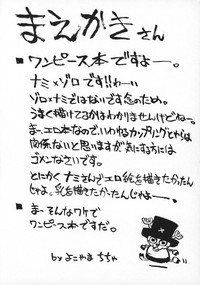 まえがきさん
■ワンピース本ですよー。
ナミ×ゾロです!!わーい
ゾロ×ナミではないです念のため。
うまく描けてるかはわかりませんけどねー。
まーエロ本なので、いわゆるカップリングとからは
関係ないと思いますが気にする方には
ゴメンなさいです。
とにかくナミさんでエロ紙を描きたかったん
じゃよ。乳を描きたかったんじゃよー。
■まーそんなワケで
ワンピース本ですだ。
by よこやま ちちゃ